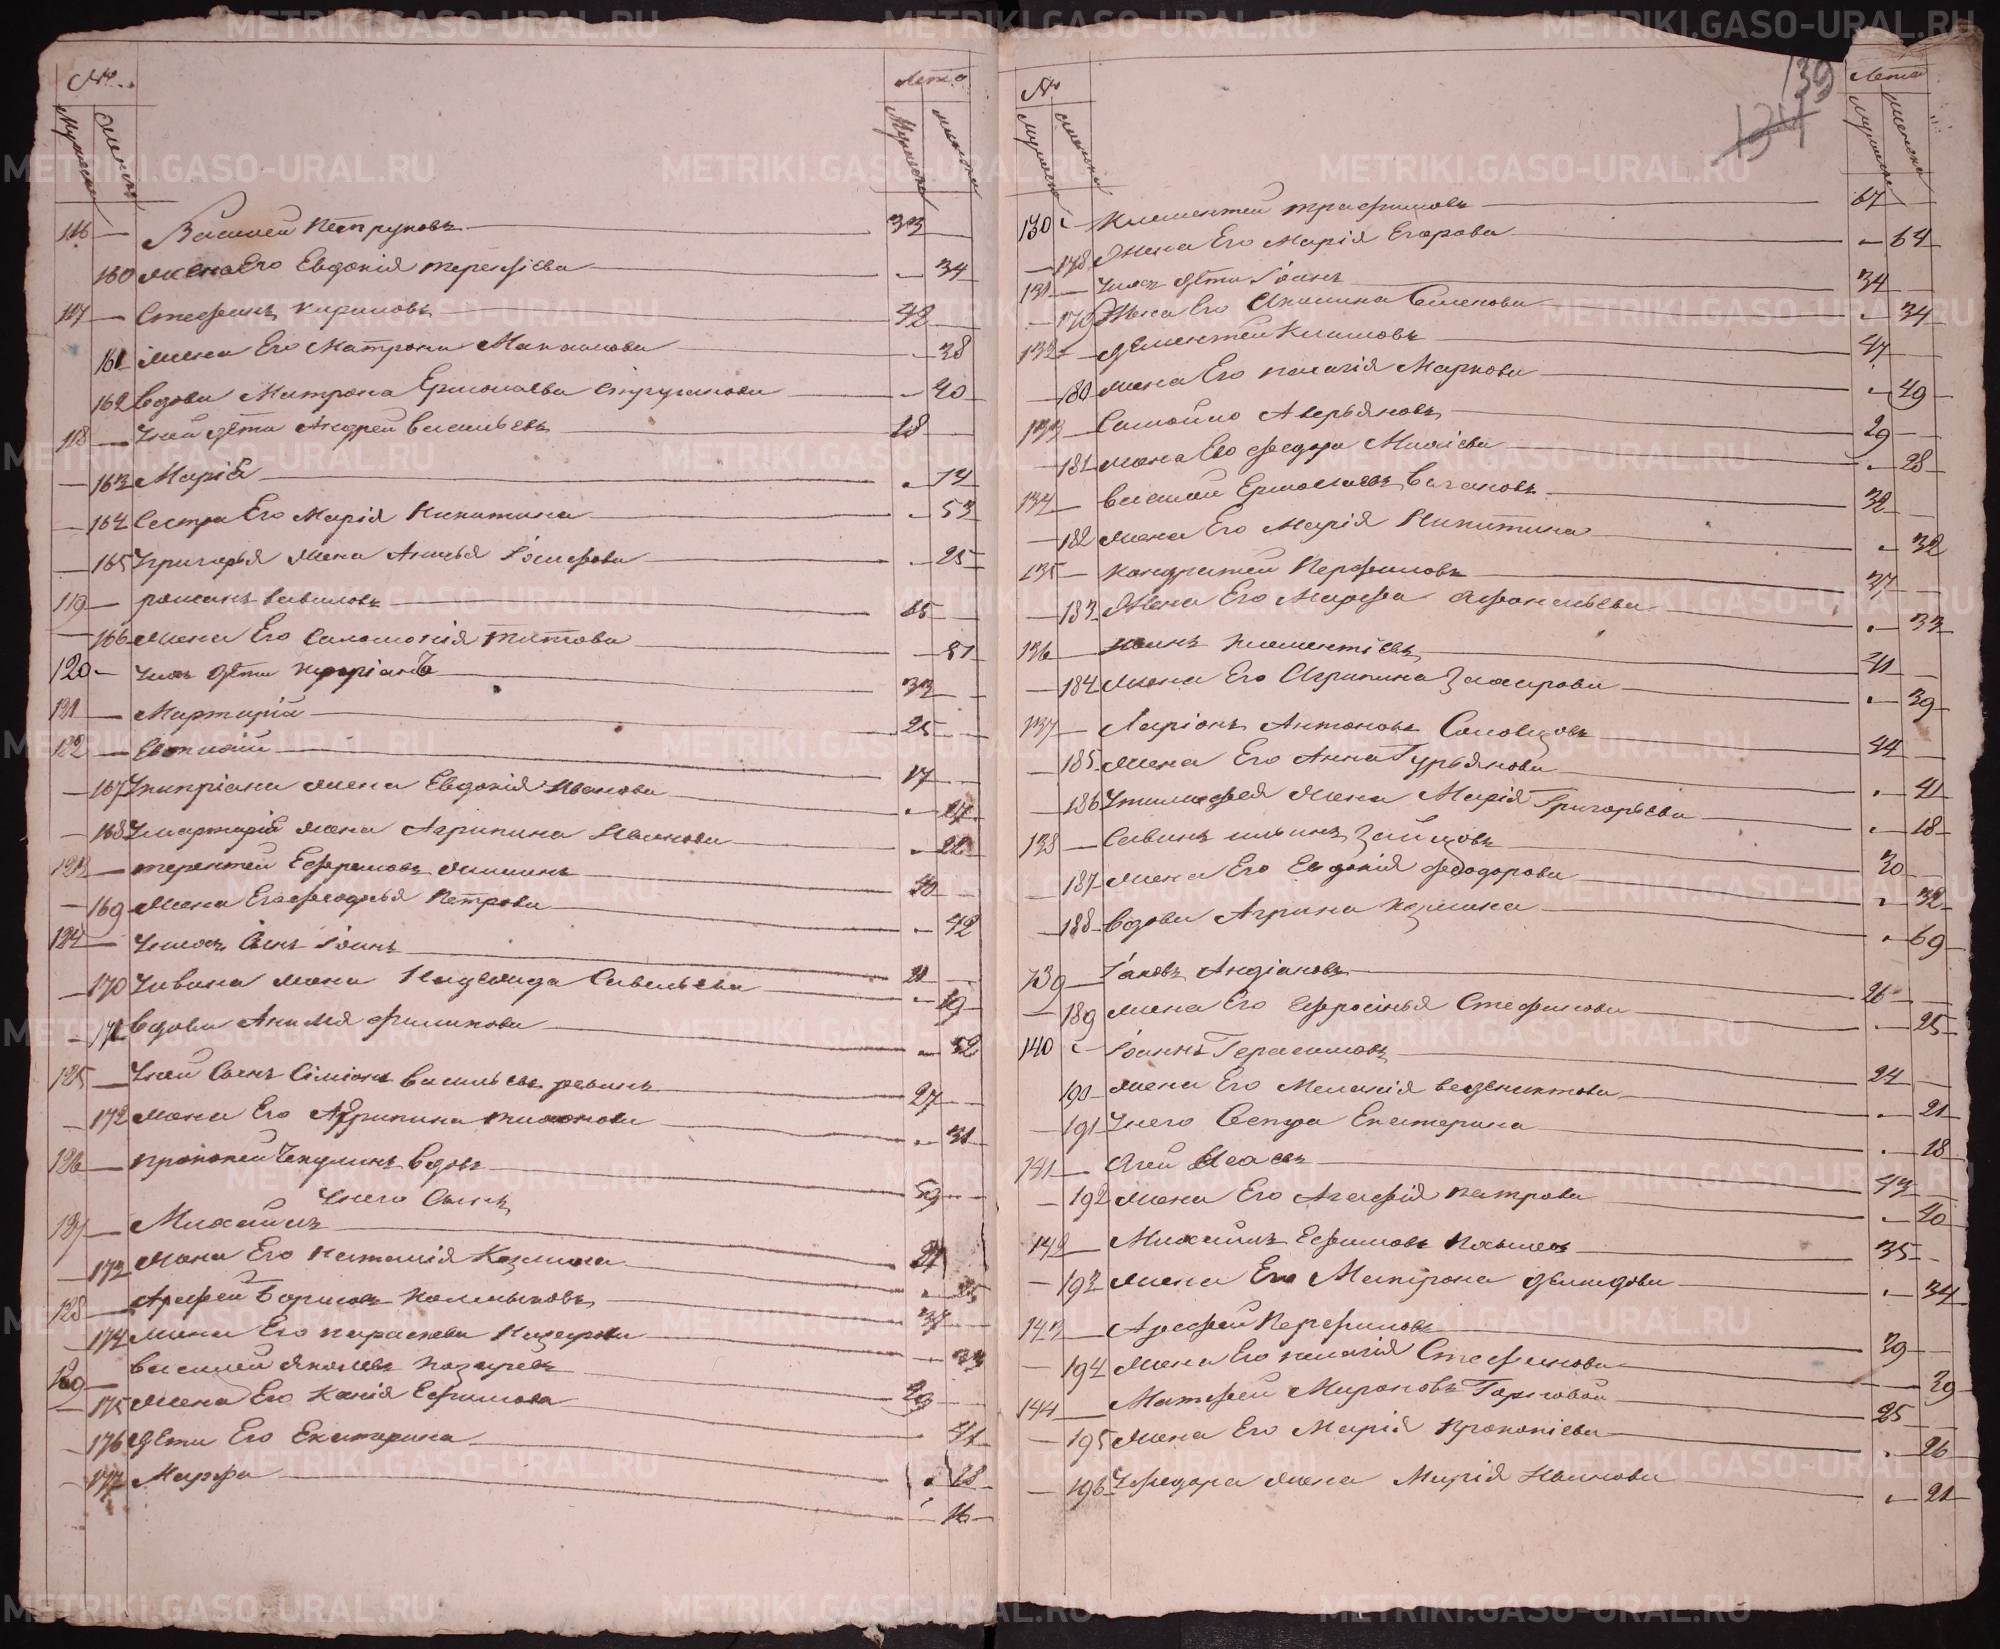 №
Лета
Мужеска
Женска
Мужеска
Женска
116 — Василей Петруковъ 33
160 жена Его Евдокія терентіева 34
117 — Стефанъ кириловъ 42
161 жена Его Матрона Максимова 38
162 вдова Матрона Ермолаева 40
118 — У ней дѣти Андрей васильевъ 18
163 Марія 14
164 Сестра Его Марія Никитина 53
165 У григорья жена Анисья Іосифова 25
119 — романъ вавиловъ 65
166 жена Его Саломонія титова 51
120 — У нихъ дѣти киприанъ 33
121 — Мартирій 25
122 — Евтихій 17
167 У киприана жена Евдокія Иванова 27
168 У мартирія жена Агрипина Иванова 22
123 — терентей Ефремовъ 40
169 жена Его Федосья Петрова 42
124 — У нихъ Сынъ Іоанъ 21
170 У ивана жена Надежида Савельева 19
171 вдова Анисья филипова 52
125 — У ней Сынъ Симіонъ васильевъ 27
172 жена Его Агрипина тихонова 31
126 — прокопей Чекулинъ вдовъ 59
У него Сынъ
127 — Михайилъ 27
173 жена Его Наталия Козмина 25
128 — Арефей Борисовъ колмыковъ 37
174 жена Его параскева Назарова 33
129 — василей яколевъ козыревъ 49
175 жена Его Ксенія Ефимова 41
176 дѣти Его Екатерина 18
177 Марфа 16
139
134
№
Лета
Мужеска
Женска
Мужеска
Женска
130 — климентей трафимовъ 67
178 Жена Его Марія Егорова 64
131 — У нихъ дѣти Іоанъ 34
179 Жена Его Акилина Семенова 34
132 — дементей Климовъ 47
180 жена Его пелагія Маркова 49
133 — Самойло Аверьяновъ 29
181 жена Его федора Михіева 28
134 — василей Ермолаевъ 32
182 жена Его Марія Никитина 32
135 — кондратей Перфиловъ 37
183 Жена Его Марфа афонасьева 33
136 — Иоанъ климентіевъ 41
184 жена Его Агрипина Захарова 39
137 — Ларіонъ Антоновъ Соловцовъ 44
185 жена Его Анна Гурьянова 41
186 У тимофея жена Марія Григорьева 18
138 — Савинъ ильинъ Зайцовъ 30
187 жена Его Евдокія феодорова 32
188 вдова Агрипина козмина 69
139 — Іаковъ Андіановъ 26
189 жена Его Ефросинья Стефанова 25
140 — Іоаннъ Герасимовъ 24
190 жена Его Меланія венедиктова 21
191 У него Сестра Екатерина 18
141 — Агей Исаевъ 43
192 жена Его Агафія петрова 40
142 — Михайилъ Ефимовъ 35
193 жена Его Матрона демидова 34
143 — Арефей Перфиловъ 39
194 жена Его пелагія Стефанова 39
144 — Матфей Мироновъ Горновой 25
195 жена Его Марія Прокопіева 26
196 У федора жена Марія Иванова 21
METRIKI.GASO-URAL.RU